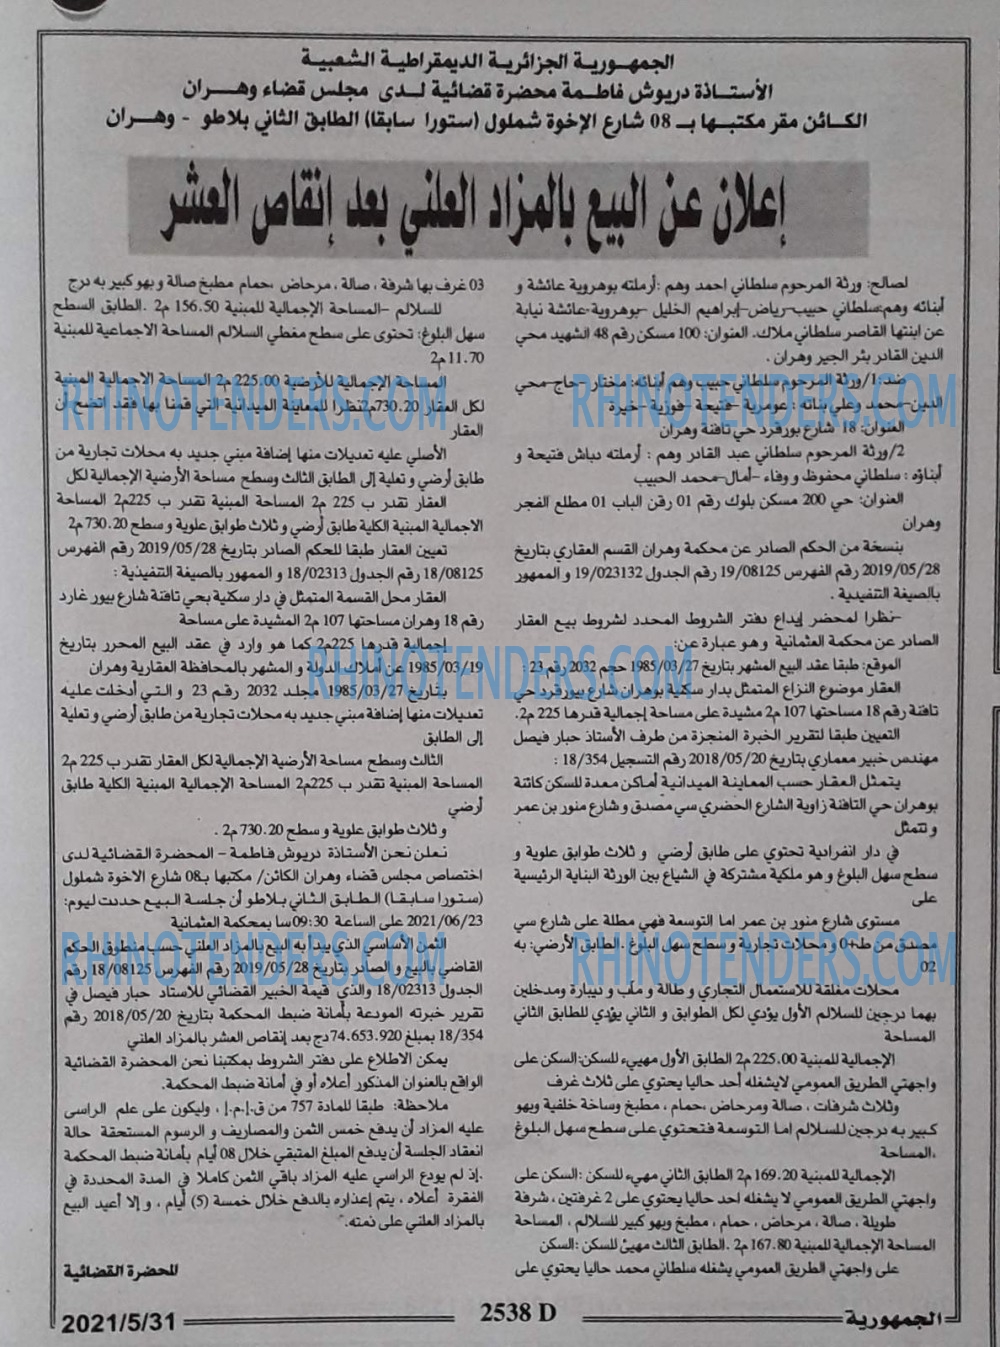 الجمهورية الجزائرية الديمقراطية الشعبية
الأستاذة دريوش فاطمة محضرة قضائية لدى مجلس قضاء وهران
الكائن مقر مكتبها بـ 08 شارع الإخوة شملول (ستورا سابقا) الطابق الثاني بلاطو - وهران
إعلان عن البيع بالمزاد العلني بعد إنقاص العشر
لصالح: ورثة المرحوم سلطاني احمد وهم :أرملته بوهروية عائشة و
أبنائه وهم:سلطاني حبيب-رياض-إبراهيم الخليل -بوهروية-عائشة نيابة
عن ابنتها القاصر سلطاني ملاك. العنوان: 100 مسكن رقم 48 الشهيد محي
الدين القادر بئر الجير وهران .
ضد:1/ورثة المرحوم سلطاني حبيب وهم أبنائه: مختار -حاج-محي
الدين-محمد وعلي بناته : عومرية -فتيحة -فوزية -خيرة
العنوان: 18 شارع بورفرد حي تافنة وهران
2/ورثة المرحوم سلطاني عبد القادر وهم : أرملته دباش فتيحة و
أبناؤه : سلطاني محفوظ و وفاء -أمال-محمد الحبيب
العنوان: حي 200 مسكن بلوك رقم 01 رقن الباب 01 مطلع الفجر
وهران
بنسخة من الحكم الصادر عن محكمة وهران القسم العقاري بتاريخ
2019/05/28 رقم الفهرس 19/08125 رقم الجدول 19/023132 و الممهور
بالصيغة التنفيدية .
-نظرا لمحضر إيداع دفتر الشروط المحدد لشروط بيع العقار
الصادر عن محكمة العثمانية و هو عبارة عن:
الموقع: طبقا عقد البيع المشهر بتاريخ 1985/03/27 حجم 2032 رقم 23 :
العقار موضوع النزاع المتمثل بدار سكنية بوهران شارع بيورفرد حي
تافنة رقم 18 مساحتها 107 م2 مشيدة على مساحة إجمالية قدرها 225 م2.
التعيين طبقا لتقرير الخبرة المنجزة من طرف الأستاذ حبار فيصل
مهندس خبير معماري بتاريخ 2018/05/20 رقم التسجيل 18/354 :
يتمثل العقار حسب المعاينة الميدانية أماكن معدة للسكن كائنة
بوهران حي التافنة زاوية الشارع الحضري سي مصدق و شارع منور بن عمر
و تتمثل
في دار انفرادية تحتوي على طابق أرضي و ثلاث طوابق علوية و
سطح سهل البلوغ و هو ملكية مشتركة في الشياع بين الورثة البناية الرئيسية
على
مستوى شارع منور بن عمر اما التوسعة فهي مطلة على شارع سي
مصدق من ط+0 و محلات تجارية و سطح سهل البلوغ .الطابق الأرضي: به
02
محلات مغلقة للاستعمال التجاري و طالة و ملب و دبارة ومدخلين
بهما درجين للسلالم الأول يؤدي لكل الطوابق و الثاني يؤدي للطابق الثاني
المساحة
الإجمالية للمبنية 225.00 م2 الطابق الأول مهيىء للسكن:السكن على
واجهتي الطريق العمومي لايشغله أحد حاليا يحتوي على ثلاث غرف
وثلاث شرفات ، صالة ومرحاض ،حمام ، مطبخ وساخة خلفية وبهو
كبير به درجين للسلالم اما التوسعة فتحتوي على سطح سهل البلوغ
،المساحة
الإجمالية للمبنية 169.20 م2 الطابق الثاني مهيء للسكن :السكن على
واجهتي الطريق العمومي لا يشغله احد حاليا يحتوي على 2 غرفتين ، شرفة
طويلة ، صالة ، مرحاض ، حمام ، مطبخ وبهو كبير للسلالم ، المساحة
المساحة الإجمالية للمبنية 167.80 م2 .الطابق الثالث مهيئ للسكن :السكن
على واجهتي الطريق العمومي يشغله سلطاني محمد حاليا يحتوي على
03 غرف بها شرفة ، صالة ، مرحاض ،حمام مطبخ صالة و بهو كبير به درج
للسلالم -المساحة الإجمالية للمبنية 156.50 م2 .الطابق السطح
سهل البلوغ: تحتوى على سطح مغطي السلالم المساحة الاجماعية للمبنية
11.70 م2
المساحة الإجمالية للأرضية 225.00 م2 المساحة الاجمالية المبنية
لكل العقار 730.20 م2نظرا للمعاينة الميدانية التي قمنا بها فقد اتضح أن
العقار
الأصلي عليه تعديلات منها إضافة مبني جديد به محلات تجارية من
طابق أرضي و تعلية إلى الطابق الثالث وسطح مساحة الأرضية الإجمالية لكل
العقار تقدر ب 225 م2 المساحة المبنية تقدر ب 225م2 المساحة
الاجمالية المبنية الكلية طابق أرضي و ثلاث طوابق علوية و سطح 730.20 م2
تعيين العقار طبقا للحكم الصادر بتاريخ 2019/05/28 رقم الفهرس
18/08125 رقم الجدول 18/02313 و الممهور بالصيغة التنفيذية :
العقار محل القسمة المتمثل في دار سكنية بحي تافنة شارع بيور غارد
رقم 18 وهران مساحتها 107 م2 المشيدة على مساحة
إجمالية قدرها 225م2 كما هو وارد في عقد البيع المحرر بتاريخ
1985/03/19 عن أملاك الدولة و المشهر بالمحافظة العقارية وهران
بتاريخ 1985/03/27 مجلد 2032 رقم 23 و التي أدخلت عليه
تعديلات منها إضافة مبني جديد به محلات تجارية من طابق أرضي و تعلية
إلى الطابق
الثالث وسطح مساحة الأرضية الإجمالية لكل العقار تقدر ب 225 م2
المساحة المبنية تقدر ب 225م2 المساحة الإجمالية المبنية الكلية طابق
أرضي
و ثلاث طوابق علوية و سطح 730.20 م2 .
نعلن نحن الأستاذة دريوش فاطمة - المحضرة القضائية لدى
اختصاص مجلس قضاء وهران الكائن/ مكتبها بـ08 شارع الاخوة شملول
(ستورا سابقا) الطابق الثاني بلاطو أن جلسة البيع حددت ليوم:
2021/06/23 على الساعة 09:30سا بمحكمة العثمانية
الثمن الأساسي الذي يبدا به البيع بالمزاد العلني حسب منطوق الحكم
القاضي بالبيع و الصادر بتاريخ 2019/05/28 رقم الفهرس 18/08125 رقم
الجدول 18/02313 والذي قيمة الخبير القضائي للاستاد حبار فيصل في
تقرير خبرته المودعة بأمانة ضبط المحكمة بتاريخ 2018/05/20 رقم
18/354 بمبلغ 74.653.920دج بعد إنقاص العشر بالمزاد العلني
يمكن الاطلاع على دفتر الشروط بمكتبنا نحن المحضرة القضائية
الواقع بالعنوان المذكور أعلاه أو في أمانة ضبط المحكمة.
ملاحظة: طبقا للمادة 757 من ق.إ.م.إ ، وليكون على علم الراسى
عليه المزاد أن يدفع خمس الثمن والمصاريف و الرسوم المستحقة حالة
انعقاد الجلسة أن يدفع المبلغ المتبقي خلال 08 أيام بأمانة ضبط المحكمة
.إذ لم يودع الراسي عليه المزاد باقي الثمن كاملا في المدة المحددة في
الفقرة أعلاه ، يتم إعذاره بالدفع خلال خمسة (5) أيام ، و إلا أعيد البيع
بالمزاد العلني على نمته.
للحضرة القضائية
الجمهورية
2538 D
2021/5/31
RHINOTENDERS.COM
RHINOTENDERS.COM
RHINOTENDERS.COM
RHINOTENDERS.COM
RHINOTENDERS.COM